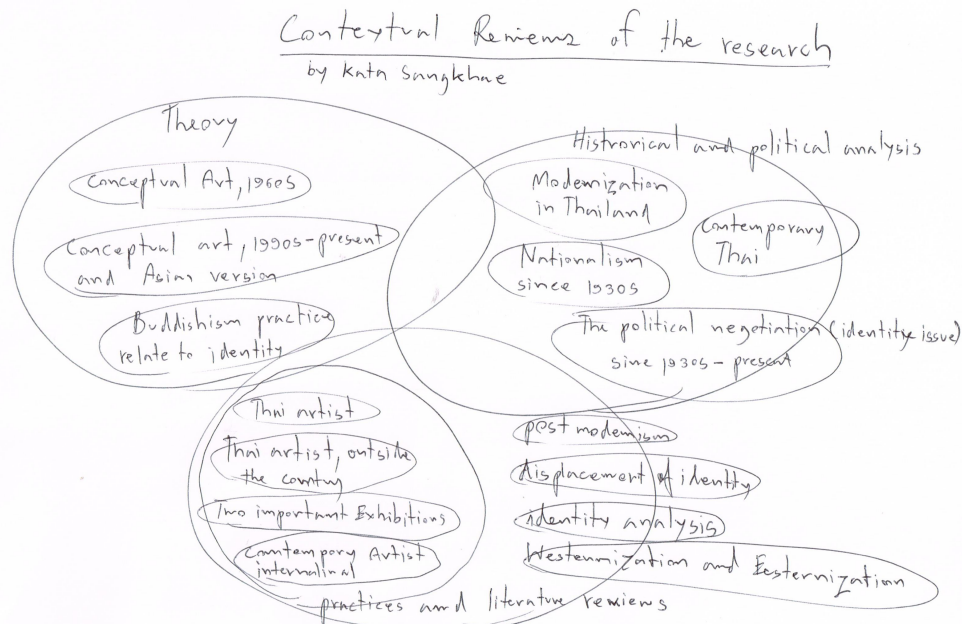 Contextual Reviews of the research
by Kata Sangkhae
Theory
Conceptual Art, 1960s
Conceptual art, 1990s-present
and Asian version
Buddishism practice
relate to identity
Histrorical and political analysis
Modernization
in Thailand
Contemporary
Thai
Nationalism
since 1930s
The political negotiation (identity issue)
since 1930s - present
Thai artist
Thai artist, outside
the country
Two important Exhibitions
Contempory Artist
internalinal
post modernism
displacement of identity
identity analysis
Westernization and Eesternization
practices and literature reviews